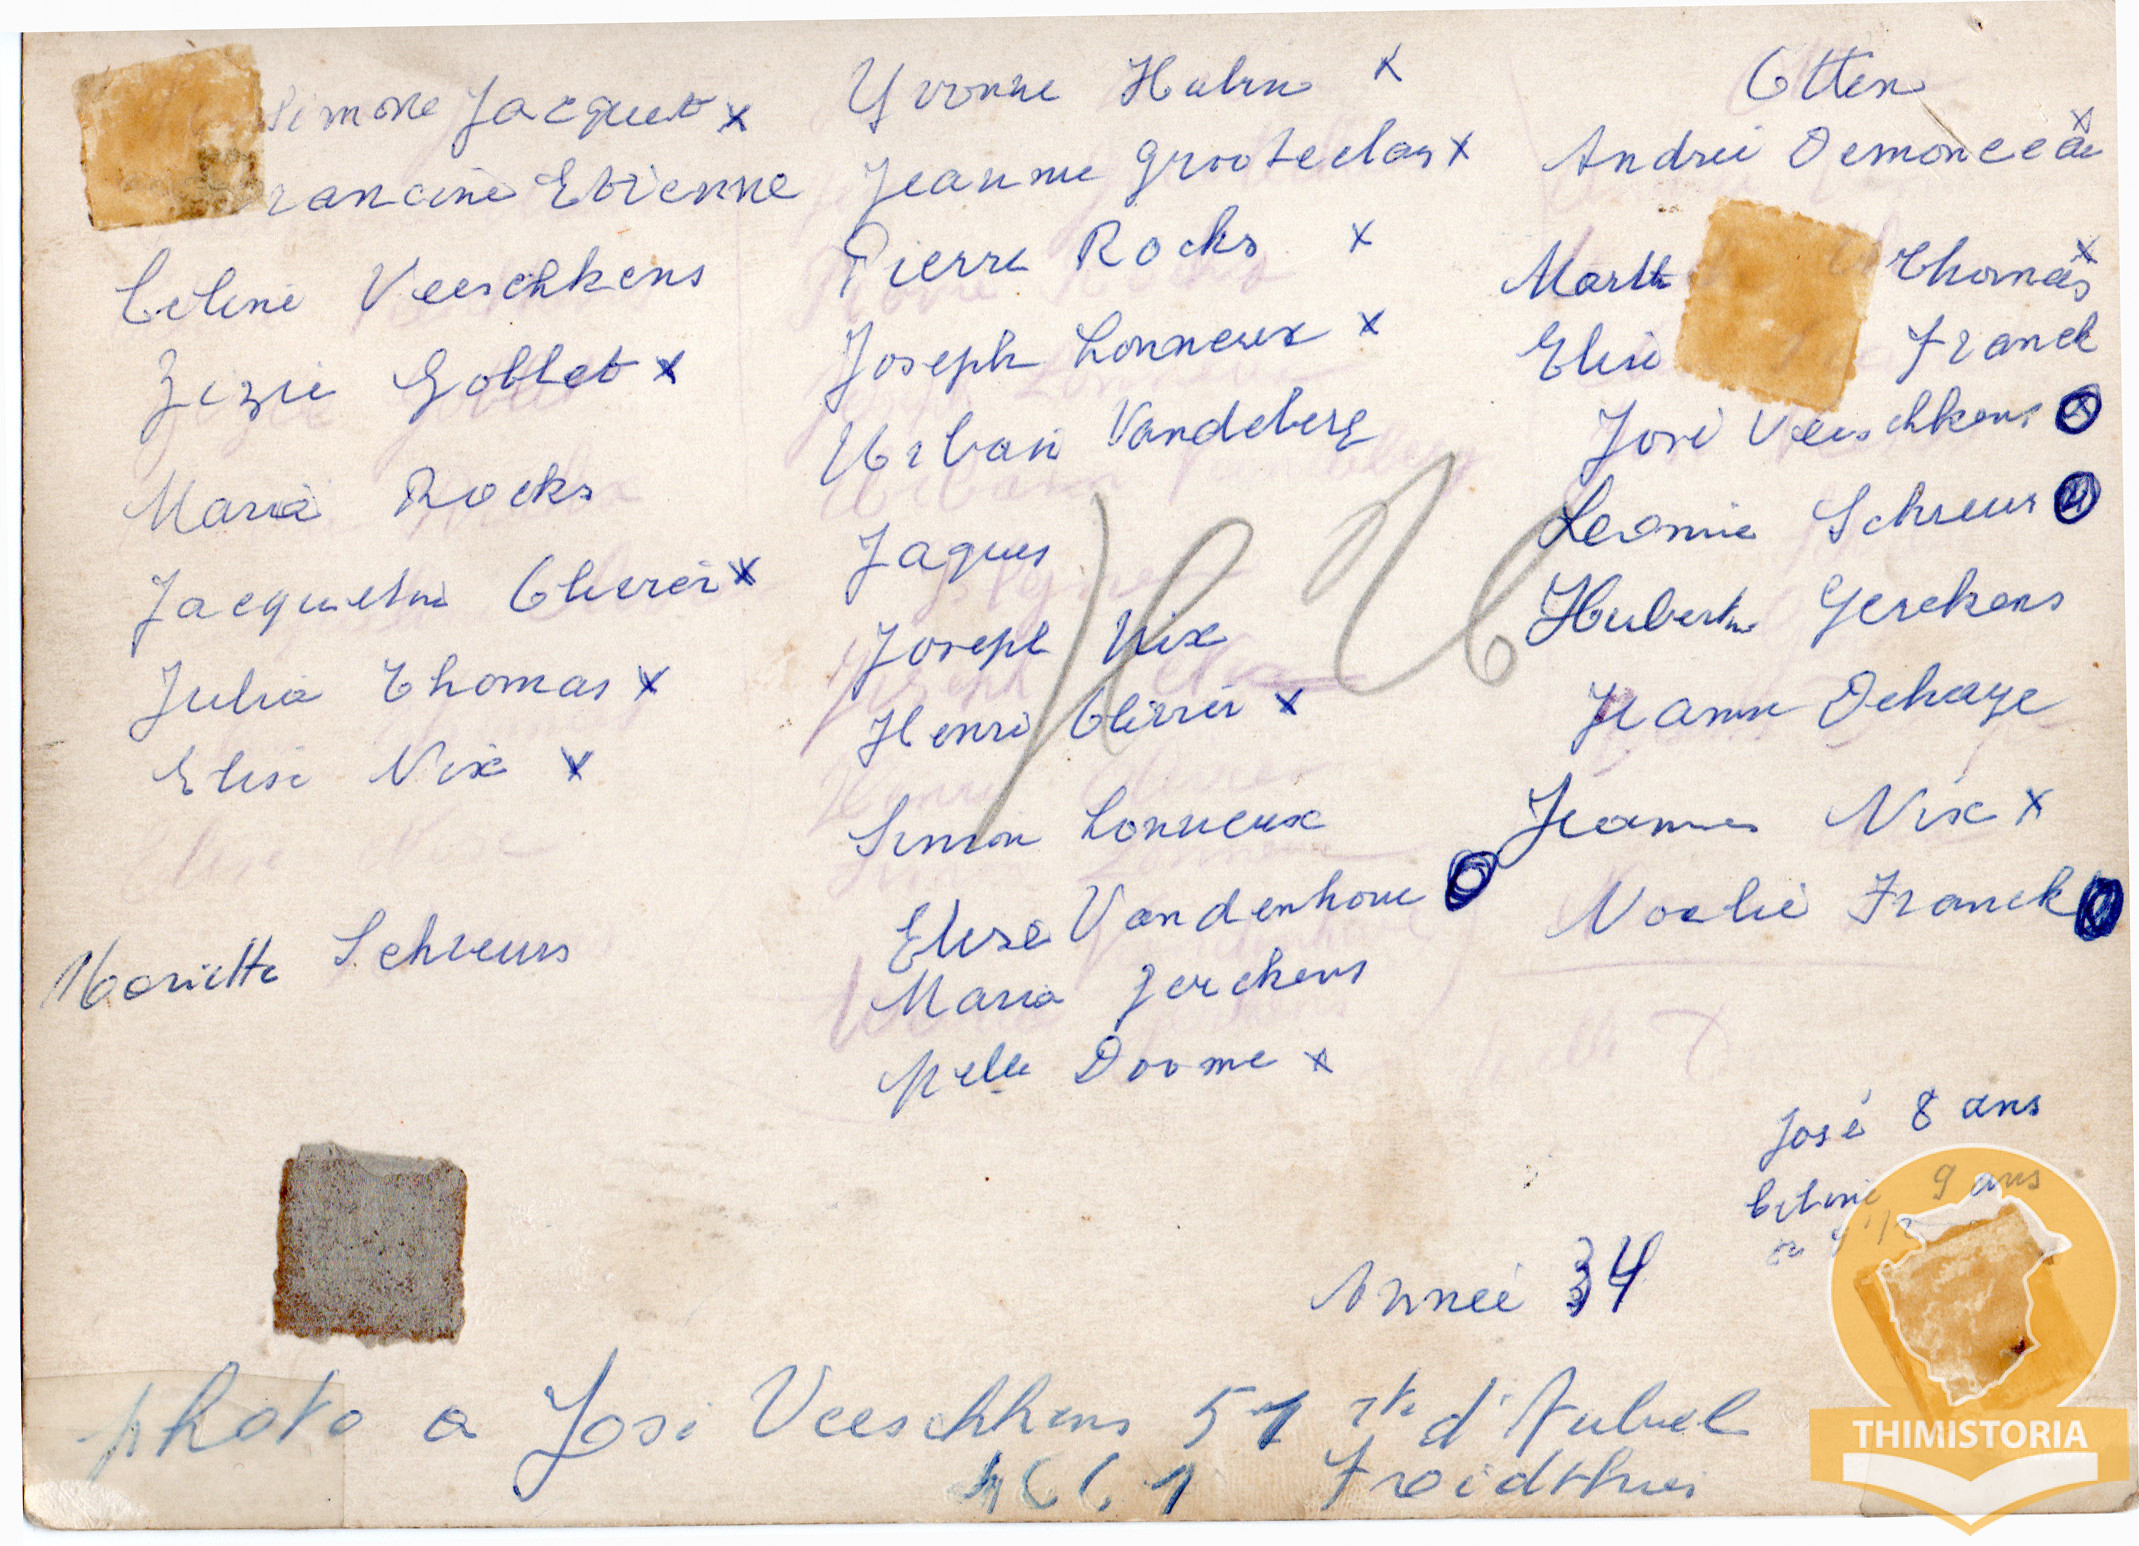 Simone Jacquet x
Francine Etienne
Celine Veeschkens
Zizie Goblet x
Maria Rocks
Jacqueline Olivier x
Julia Thomas x
Elise Nix x
Mariette Schreurs
Yvonne Hahn x
Jeanne Grooteclaes x
Pierre Rocks x
Joseph Lonneux x
Urbain Vandeberg
Jaques
Joseph Nix
Henri Olivier x
Simon Lonneux
Elise Vandenhove
Maria Gerckens
Melle Doome x
Otten
André Demonceau x
Marth Thomas x
Elise Franck
José Veeschkens x
Leonie Schreurs
Hubertine Gerekens
Jeanne Dehaye
Jeanne Nix x
Noelie Franck
José 8 ans
Celine 9 ans
Année 34
photo a José Veeschkens 51 rte d'Aubel
4661 Froidthier
THIMISTORIA